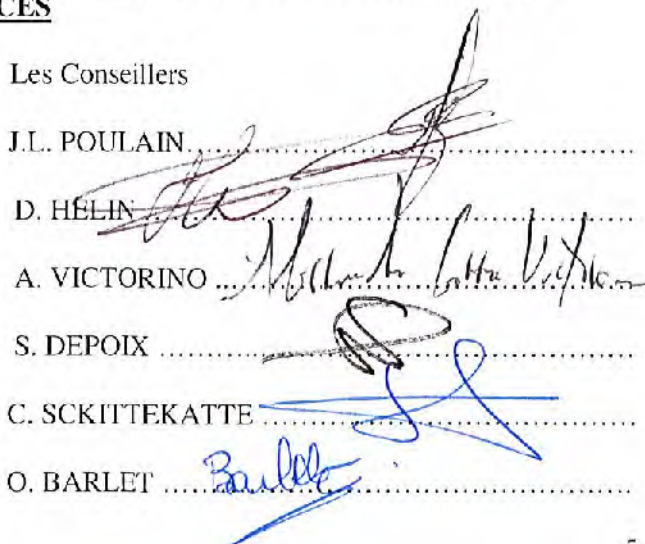 CES
Les Conseillers
J.L. POULAIN
D. HELIN
A. VICTORINO
S. DEPOIX
C. SCKITTEKATTE
O. BARLET Barlet